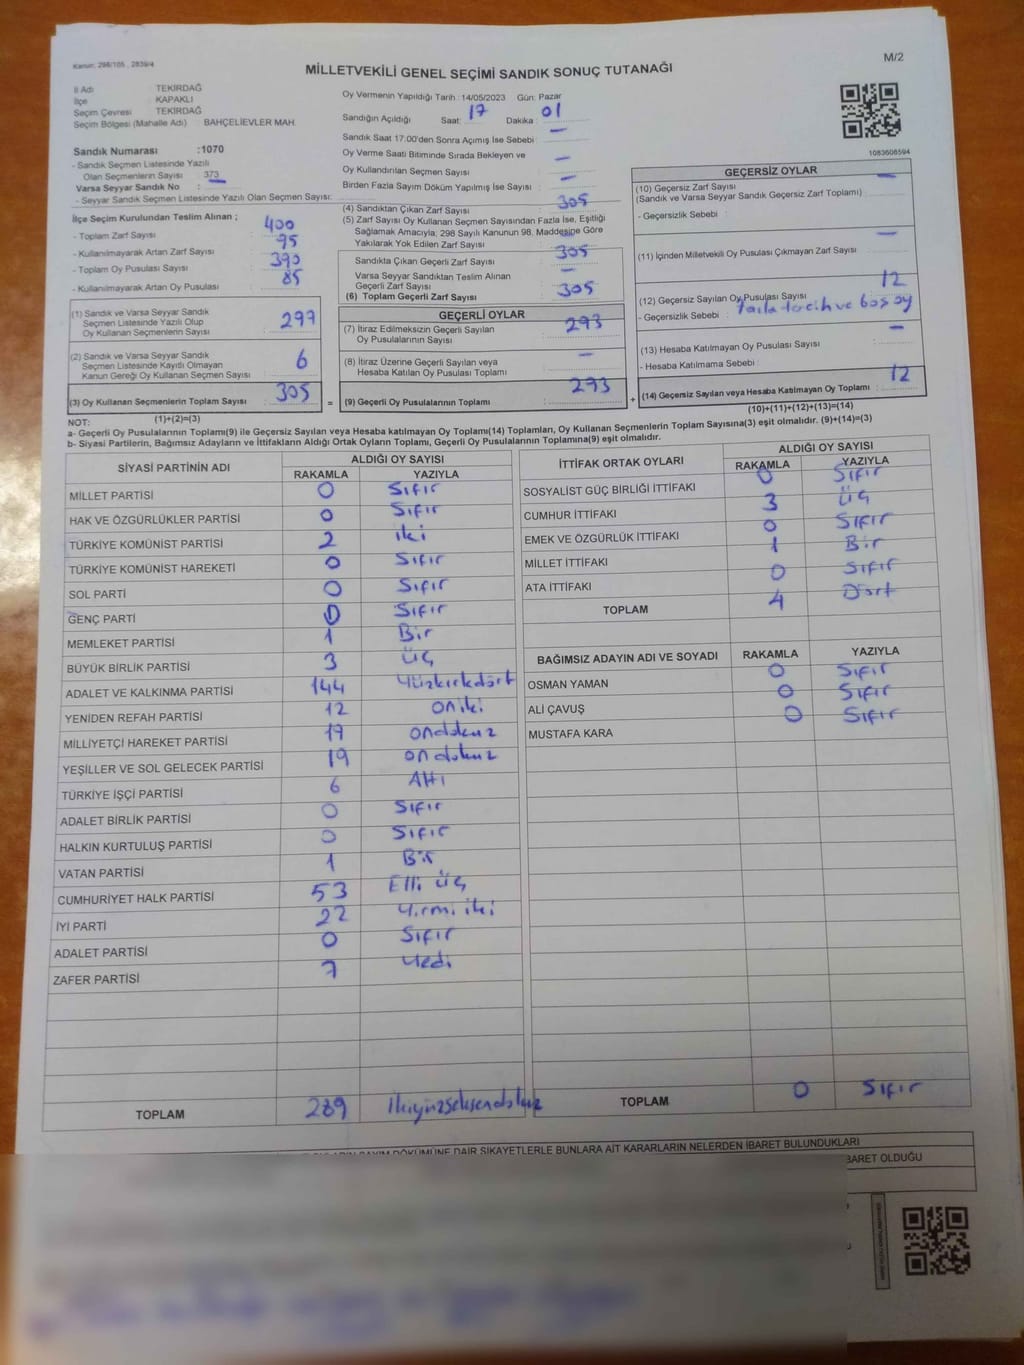 Kanun: 298/105 , 2839/4
M/2
MİLLETVEKİLİ GENEL SEÇİMİ SANDIK SONUÇ TUTANAĞI
İl Adı TEKİRDAĞ
İlçe KAPAKLI
Seçim Çevresi TEKİRDAĞ
Seçim Bölgesi (Mahalle Adı) : BAHÇELİEVLER MAH.
Sandık Numarası :1070
- Sandık Seçmen Listesinde Yazılı
Olan Seçmenlerin Sayısı : 373
Varsa Seyyar Sandık No :
- Seyyar Sandık Seçmen Listesinde Yazılı Olan Seçmen Sayısı:
İlçe Seçim Kurulundan Teslim Alınan ;
- Toplam Zarf Sayısı : 400
- Kullanılmayarak Artan Zarf Sayısı : 95
- Toplam Oy Pusulası Sayısı : 390
- Kullanılmayarak Artan Oy Pusulası : 85
(1) Sandık ve Varsa Seyyar Sandık
Seçmen Listesinde Yazılı Olup
Oy Kullanan Seçmenlerin Sayısı : 299
(2) Sandık ve Varsa Seyyar Sandık
Seçmen Listesinde Kayıtlı Olmayan
Kanun Gereği Oy Kullanan Seçmen Sayısı : 6
(3) Oy Kullanan Seçmenlerin Toplam Sayısı : 305
(1)+(2)=(3)
Oy Vermenin Yapıldığı Tarih : 14/05/2023 Gün: Pazar
Sandığın Açıldığı Saat: 17 Dakika : 01
Sandık Saat 17:00'den Sonra Açımış İse Sebebi : —
Oy Verme Saati Bitiminde Sırada Bekleyen ve
Oy Kullandırılan Seçmen Sayısı : —
Birden Fazla Sayım Döküm Yapılmış İse Sayısı : —
(4) Sandıktan Çıkan Zarf Sayısı : 305
(5) Zarf Sayısı Oy Kullanan Seçmen Sayısından Fazla İse, Eşitliği
Sağlamak Amacıyla; 298 Sayılı Kanunun 98. Maddesine Göre
Yakılarak Yok Edilen Zarf Sayısı : —
Sandıkta Çıkan Geçerli Zarf Sayısı : 305
Varsa Seyyar Sandıktan Teslim Alınan
Geçerli Zarf Sayısı : —
(6) Toplam Geçerli Zarf Sayısı : 305
GEÇERLİ OYLAR
(7) İtiraz Edilmeksizin Geçerli Sayılan
Oy Pusulalarının Sayısı : 293
(8) İtiraz Üzerine Geçerli Sayılan veya
Hesaba Katılan Oy Pusulası Toplamı : —
= (9) Geçerli Oy Pusulalarının Toplamı : 293 +
1083606594
GEÇERSİZ OYLAR
(10) Geçersiz Zarf Sayısı : —
(Sandık ve Varsa Seyyar Sandık Geçersiz Zarf Toplamı)
- Geçersizlik Sebebi :
(11) İçinden Milletvekili Oy Pusulası Çıkmayan Zarf Sayısı : —
(12) Geçersiz Sayılan Oy Pusulası Sayısı : 12
- Geçersizlik Sebebi : fazla tercih ve boş oy
(13) Hesaba Katılmayan Oy Pusulası Sayısı : —
- Hesaba Katılmama Sebebi :
(14) Geçersiz Sayılan veya Hesaba Katılmayan Oy Toplamı : 12
(10)+(11)+(12)+(13)=(14)
NOT:
a- Geçerli Oy Pusulalarının Toplamı(9) ile Geçersiz Sayılan veya Hesaba katılmayan Oy Toplamı(14) Toplamları, Oy Kullanan Seçmenlerin Toplam Sayısına(3) eşit olmalıdır. (9)+(14)=(3)
b- Siyasi Partilerin, Bağımsız Adayların ve İttifakların Aldığı Ortak Oyların Toplamı, Geçerli Oy Pusulalarının Toplamına(9) eşit olmalıdır.
SİYASİ PARTİNİN ADI ALDIĞI OY SAYISI
RAKAMLA YAZIYLA
MİLLET PARTİSİ 0 Sıfır
HAK VE ÖZGÜRLÜKLER PARTİSİ 0 Sıfır
TÜRKİYE KOMÜNİST PARTİSİ 2 iki
TÜRKİYE KOMÜNİST HAREKETİ 0 Sıfır
SOL PARTİ 0 Sıfır
GENÇ PARTİ 0 Sıfır
MEMLEKET PARTİSİ 1 Bir
BÜYÜK BİRLİK PARTİSİ 3 üç
ADALET VE KALKINMA PARTİSİ 144 Yüzkırkdört
YENİDEN REFAH PARTİSİ 12 oniki
MİLLİYETÇİ HAREKET PARTİSİ 19 ondokuz
YEŞİLLER VE SOL GELECEK PARTİSİ 19 ondokuz
TÜRKİYE İŞÇİ PARTİSİ 6 Altı
ADALET BİRLİK PARTİSİ 0 Sıfır
HALKIN KURTULUŞ PARTİSİ 0 Sıfır
VATAN PARTİSİ 1 Bir
CUMHURİYET HALK PARTİSİ 53 Elli üç
İYİ PARTİ 22 Yirmi iki
ADALET PARTİSİ 0 Sıfır
ZAFER PARTİSİ 7 Yedi
TOPLAM 289 İkiyüzseksendokuz
İTTİFAK ORTAK OYLARI ALDIĞI OY SAYISI
RAKAMLA YAZIYLA
SOSYALİST GÜÇ BİRLİĞİ İTTİFAKI 0 Sıfır
CUMHUR İTTİFAKI 3 üç
EMEK VE ÖZGÜRLÜK İTTİFAKI 0 Sıfır
MİLLET İTTİFAKI 1 Bir
ATA İTTİFAKI 0 Sıfır
TOPLAM 4 Dört
BAĞIMSIZ ADAYIN ADI VE SOYADI RAKAMLA YAZIYLA
OSMAN YAMAN 0 Sıfır
ALİ ÇAVUŞ 0 Sıfır
MUSTAFA KARA 0 Sıfır
TOPLAM 0 Sıfır
DÖKÜMÜNE DAİR ŞİKAYETLERLE BUNLARA AİT KARARLARIN NELERDEN İBARET BULUNDUKLARI
BARET OLDUĞU